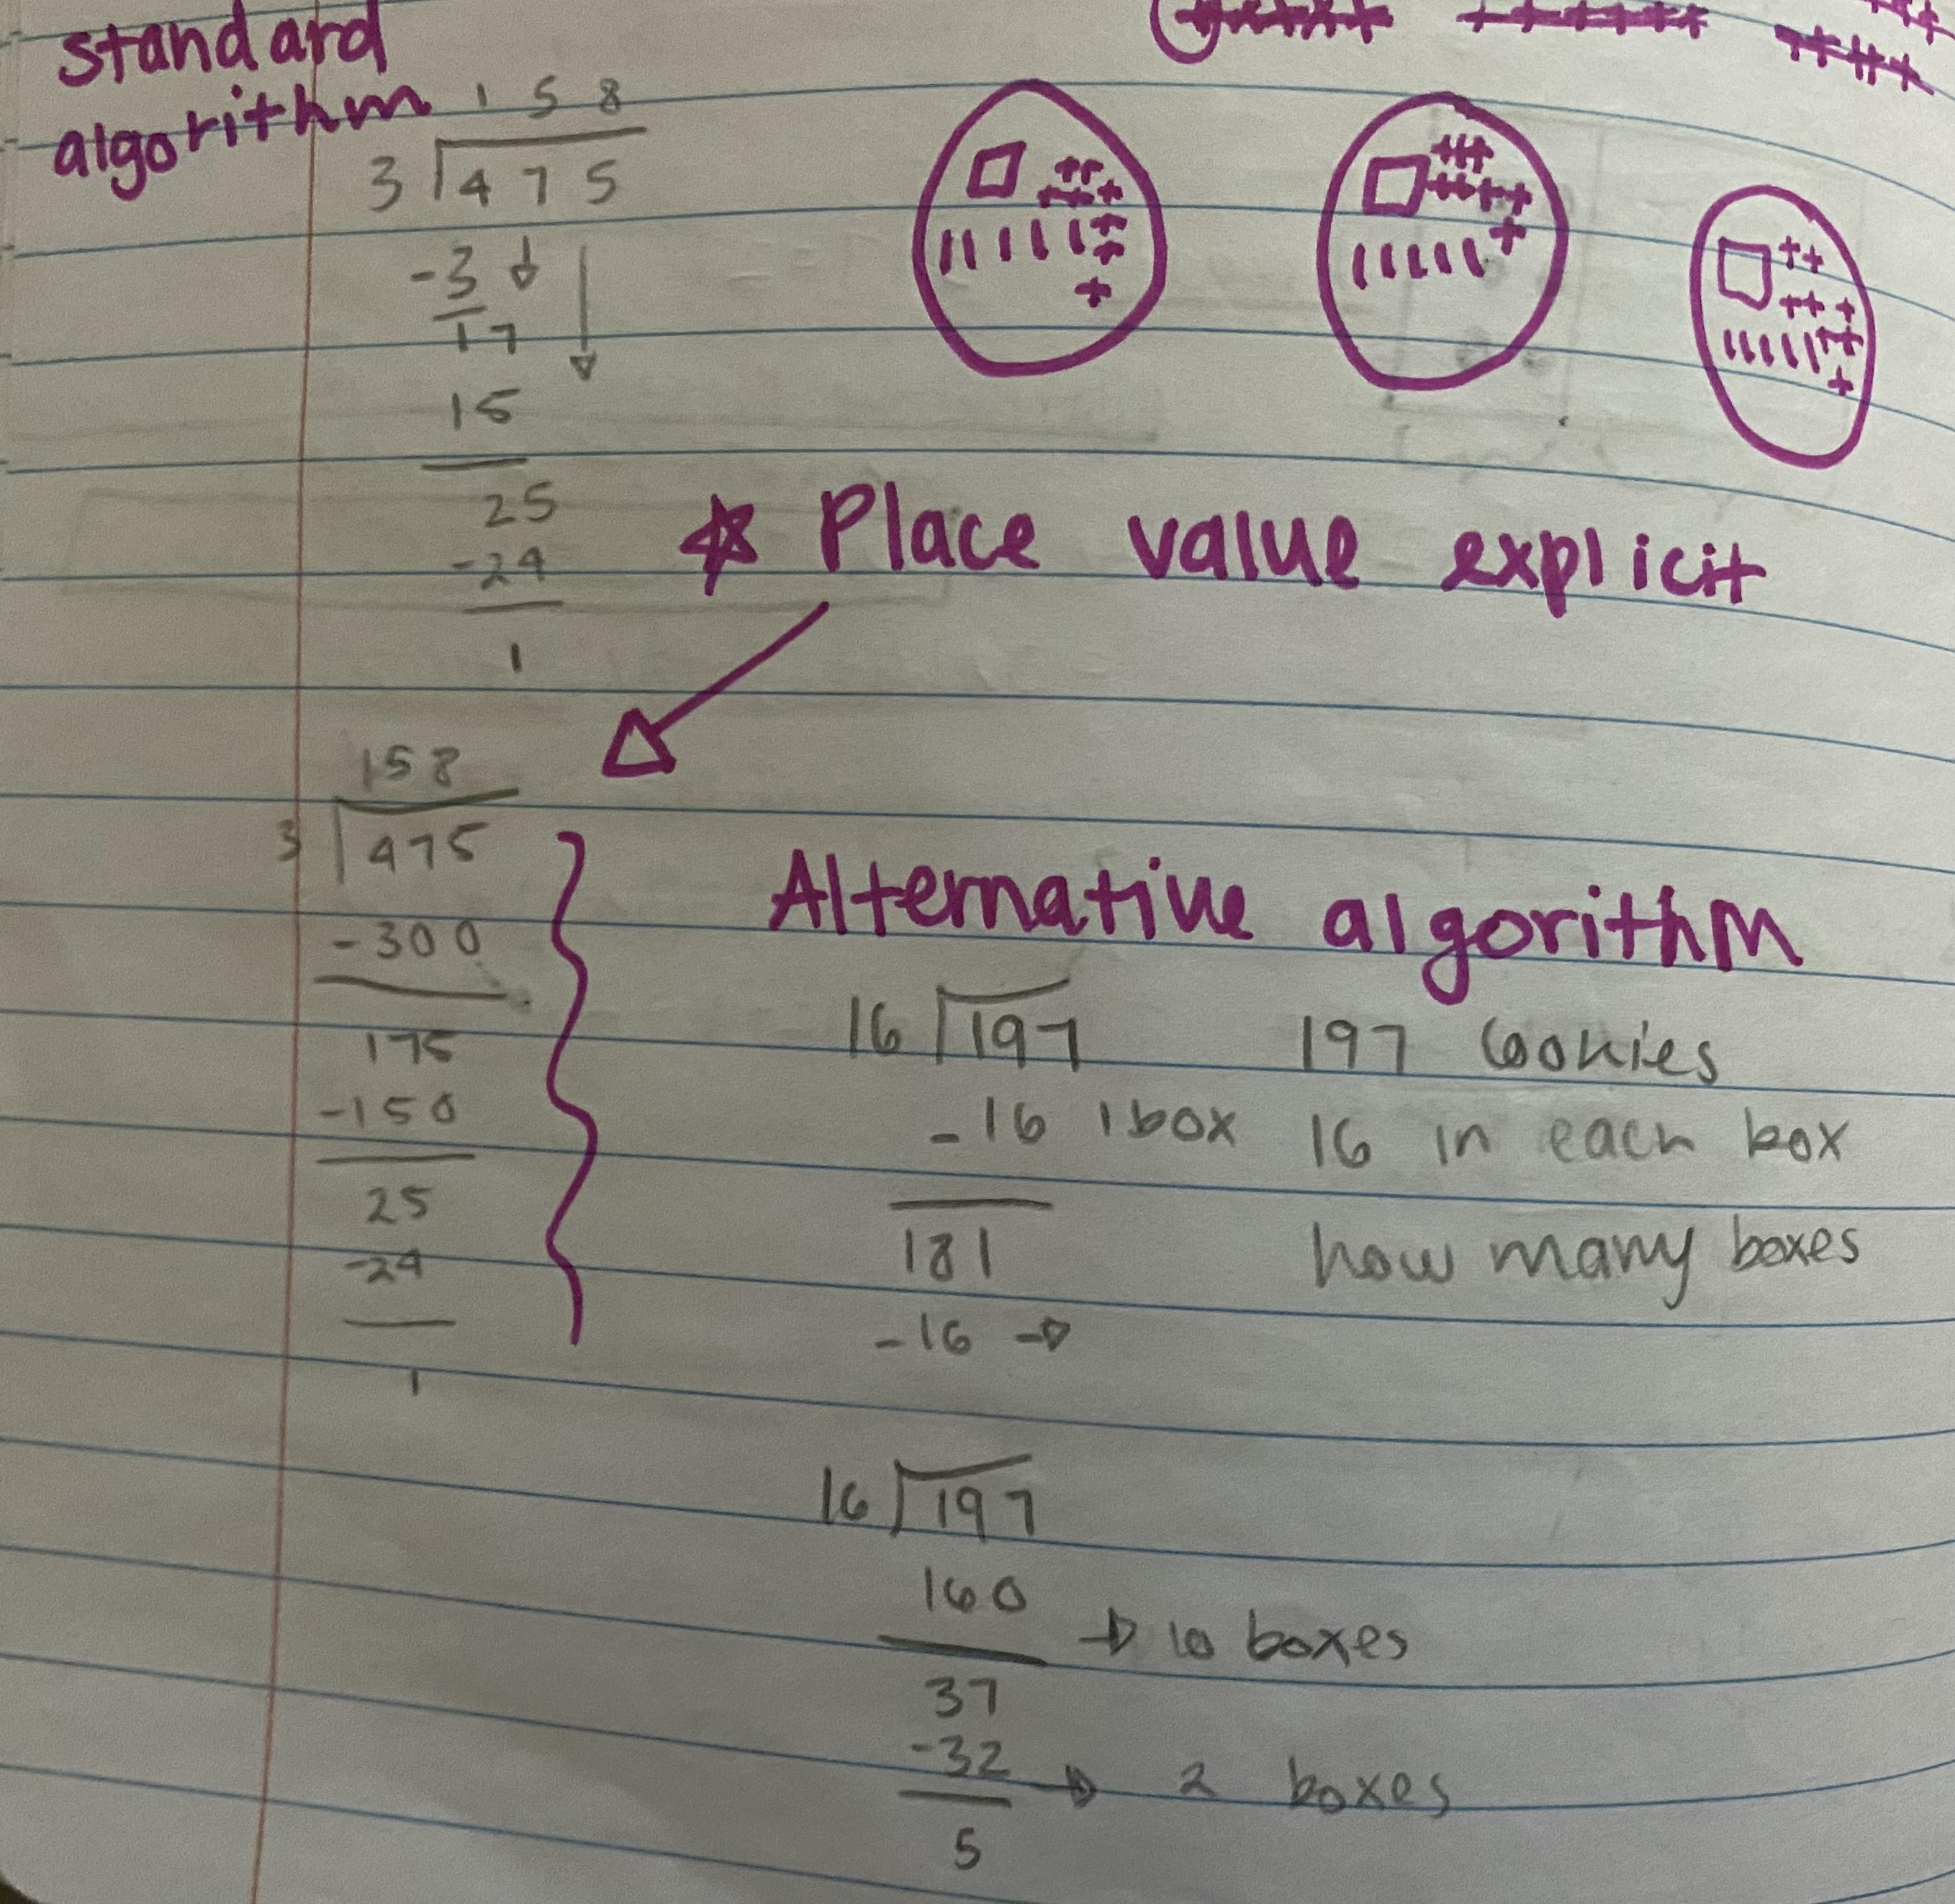 standard
algorithm
1 5 8
3 475
-3
17
15
25
-24
1
☆ Place value explicit
158
3 475
-300
175
-150
25
-24
1
Alternative algorithm
16 197 197 cookies
-16 1 box 16 in each box
181 how many boxes
-16 →
16 197
160
→ 10 boxes
37
-32 → 2 boxes
5